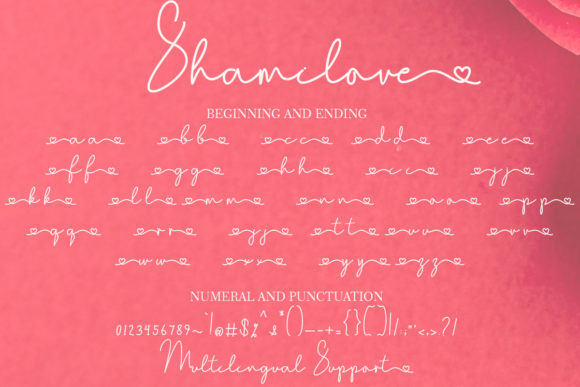 Shamilove
BEGINNING AND ENDING
aa bb cc dd ee
ff gg hh ii jj
kk ll mm nn oo pp
qq rr ss tt uu vv
ww xx yy zz
NUMERAL AND PUNCTUATION
0123456789~`|@#$%^&*()_-+={}[]|/:;"'<,>.?/
Multilingual Support